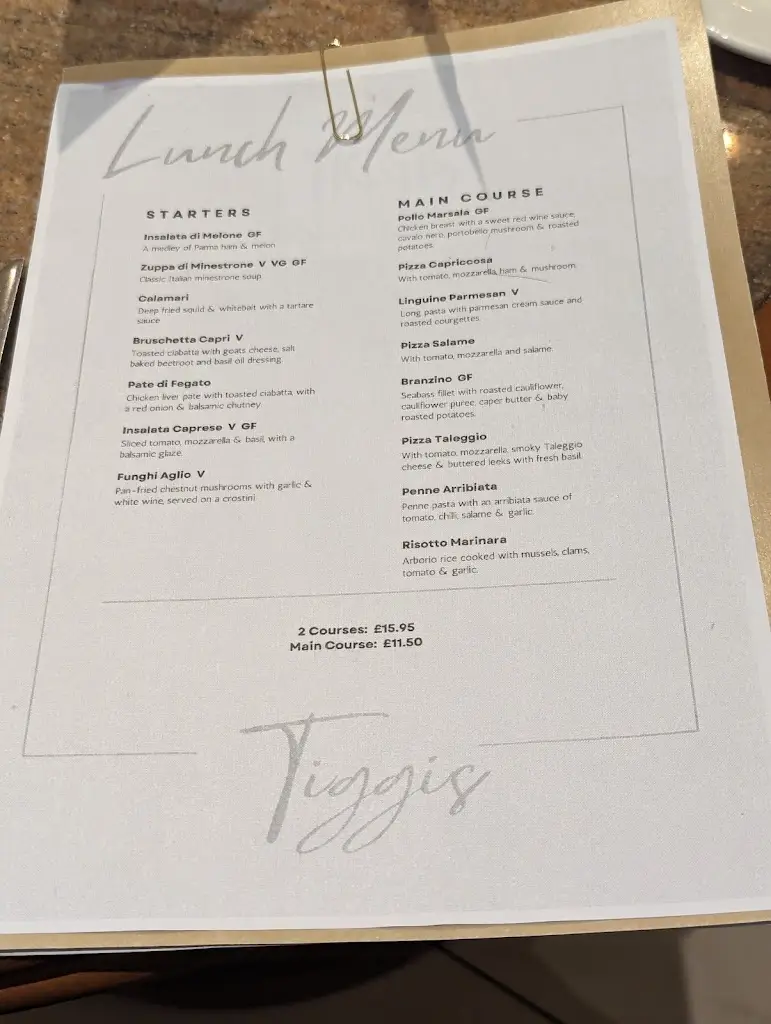 Lunch Menu
STARTERS
Insalata di Melone GF
A medley of Parma ham & melon
Zuppa di Minestrone V VG GF
Classic Italian minestrone soup
Calamari
Deep fried squid & whitebait with a tartare
sauce
Bruschetta Capri V
Toasted ciabatta with goats cheese, salt
baked beetroot and basil oil dressing
Pate di Fegato
Chicken liver pate with toasted ciabatta, with
a red onion & balsamic chutney
Insalata Caprese V GF
Sliced tomato, mozzarella & basil, with a
balsamic glaze
Funghi Aglio V
Pan-fried chestnut mushrooms with garlic &
white wine, served on a crostini
MAIN COURSE
Pollo Marsala GF
Chicken breast with a sweet red wine sauce,
cavalo nero, portobello mushroom & roasted
potatoes.
Pizza Capriccosa
With tomato, mozzarella, ham & mushroom.
Linguine Parmesan V
Long pasta with parmesan cream sauce and
roasted courgettes.
Pizza Salame
With tomato, mozzarella and salame.
Branzino GF
Seabass fillet with roasted cauliflower,
cauliflower puree, caper butter & baby
roasted potatoes.
Pizza Taleggio
With tomato, mozzarella, smoky Taleggio
cheese & buttered leeks with fresh basil.
Penne Arribiata
Penne pasta with an arribiata sauce of
tomato, chilli, salame & garlic.
Risotto Marinara
Arborio rice cooked with mussels, clams,
tomato & garlic.
2 Courses: £15.95
Main Course: £11.50
Tiggis